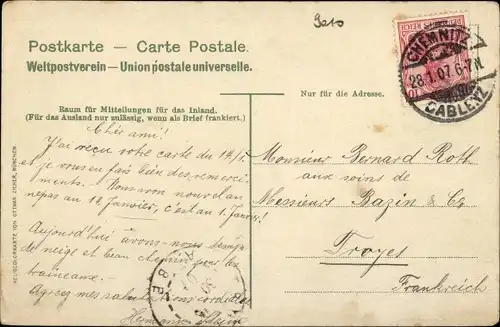 Postkarte — Carte Postale.
Weltpostverein — Union postale universelle.
Raum für Mitteilungen für das Inland.
(Für das Ausland nur zulässig, wenn als Brief frankiert.)
Nur für die Adresse.
CHEMNITZ
28.1.07. 6-7N
GABLENZ
Chér ami!
J'ai reçu votre carte du 14/1.
et je vous en fais bein des remerci-
ments. nouvel an
pas au 18 Janvier, c'est au 1 Janvier!
Aujourd'hui avons-nous
de neige et beau chemin pour les
traîneaux.
Agreez mes salutations cordiales
Monsieur Bernard Roth
aux soins de
Messieurs Bazin & Co
Troyes
Frankreich